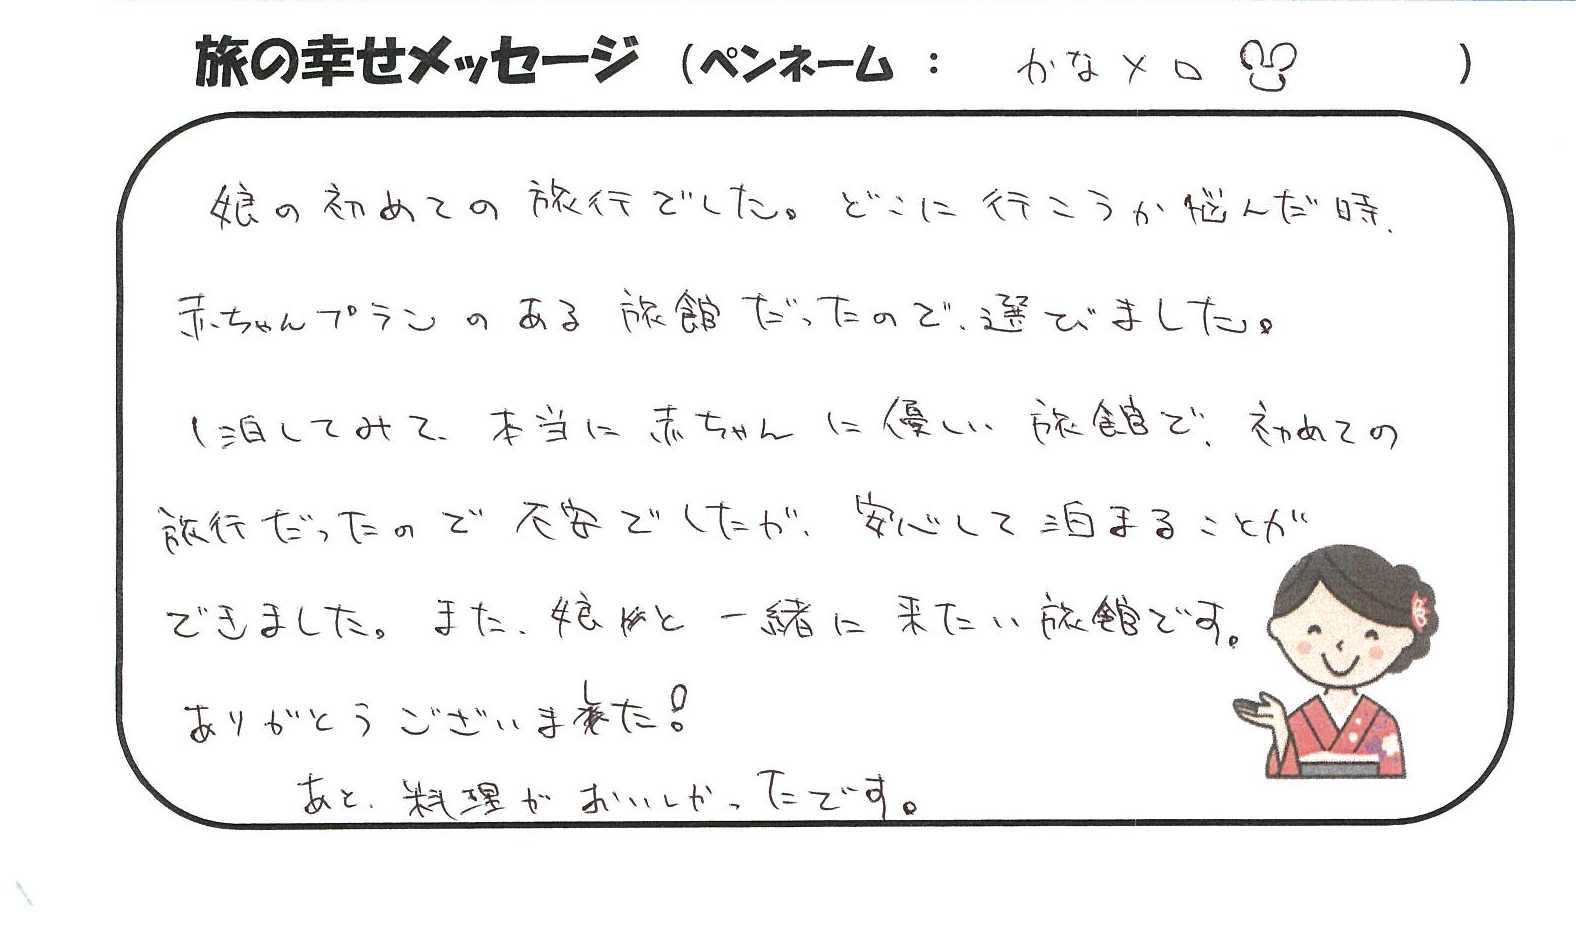 旅の幸せメッセージ (ペンネーム : かなメロ )
娘の初めての旅行でした。どこに行こうか悩んだ時、
赤ちゃんプランのある旅館だったので、選びました。
1泊してみて、本当に赤ちゃんに優しい旅館で、初めての
旅行だったので不安でしたが、安心して泊まることが
できました。また、娘と一緒に来たい旅館です。
ありがとうございました!
あと、料理がおいしかったです。